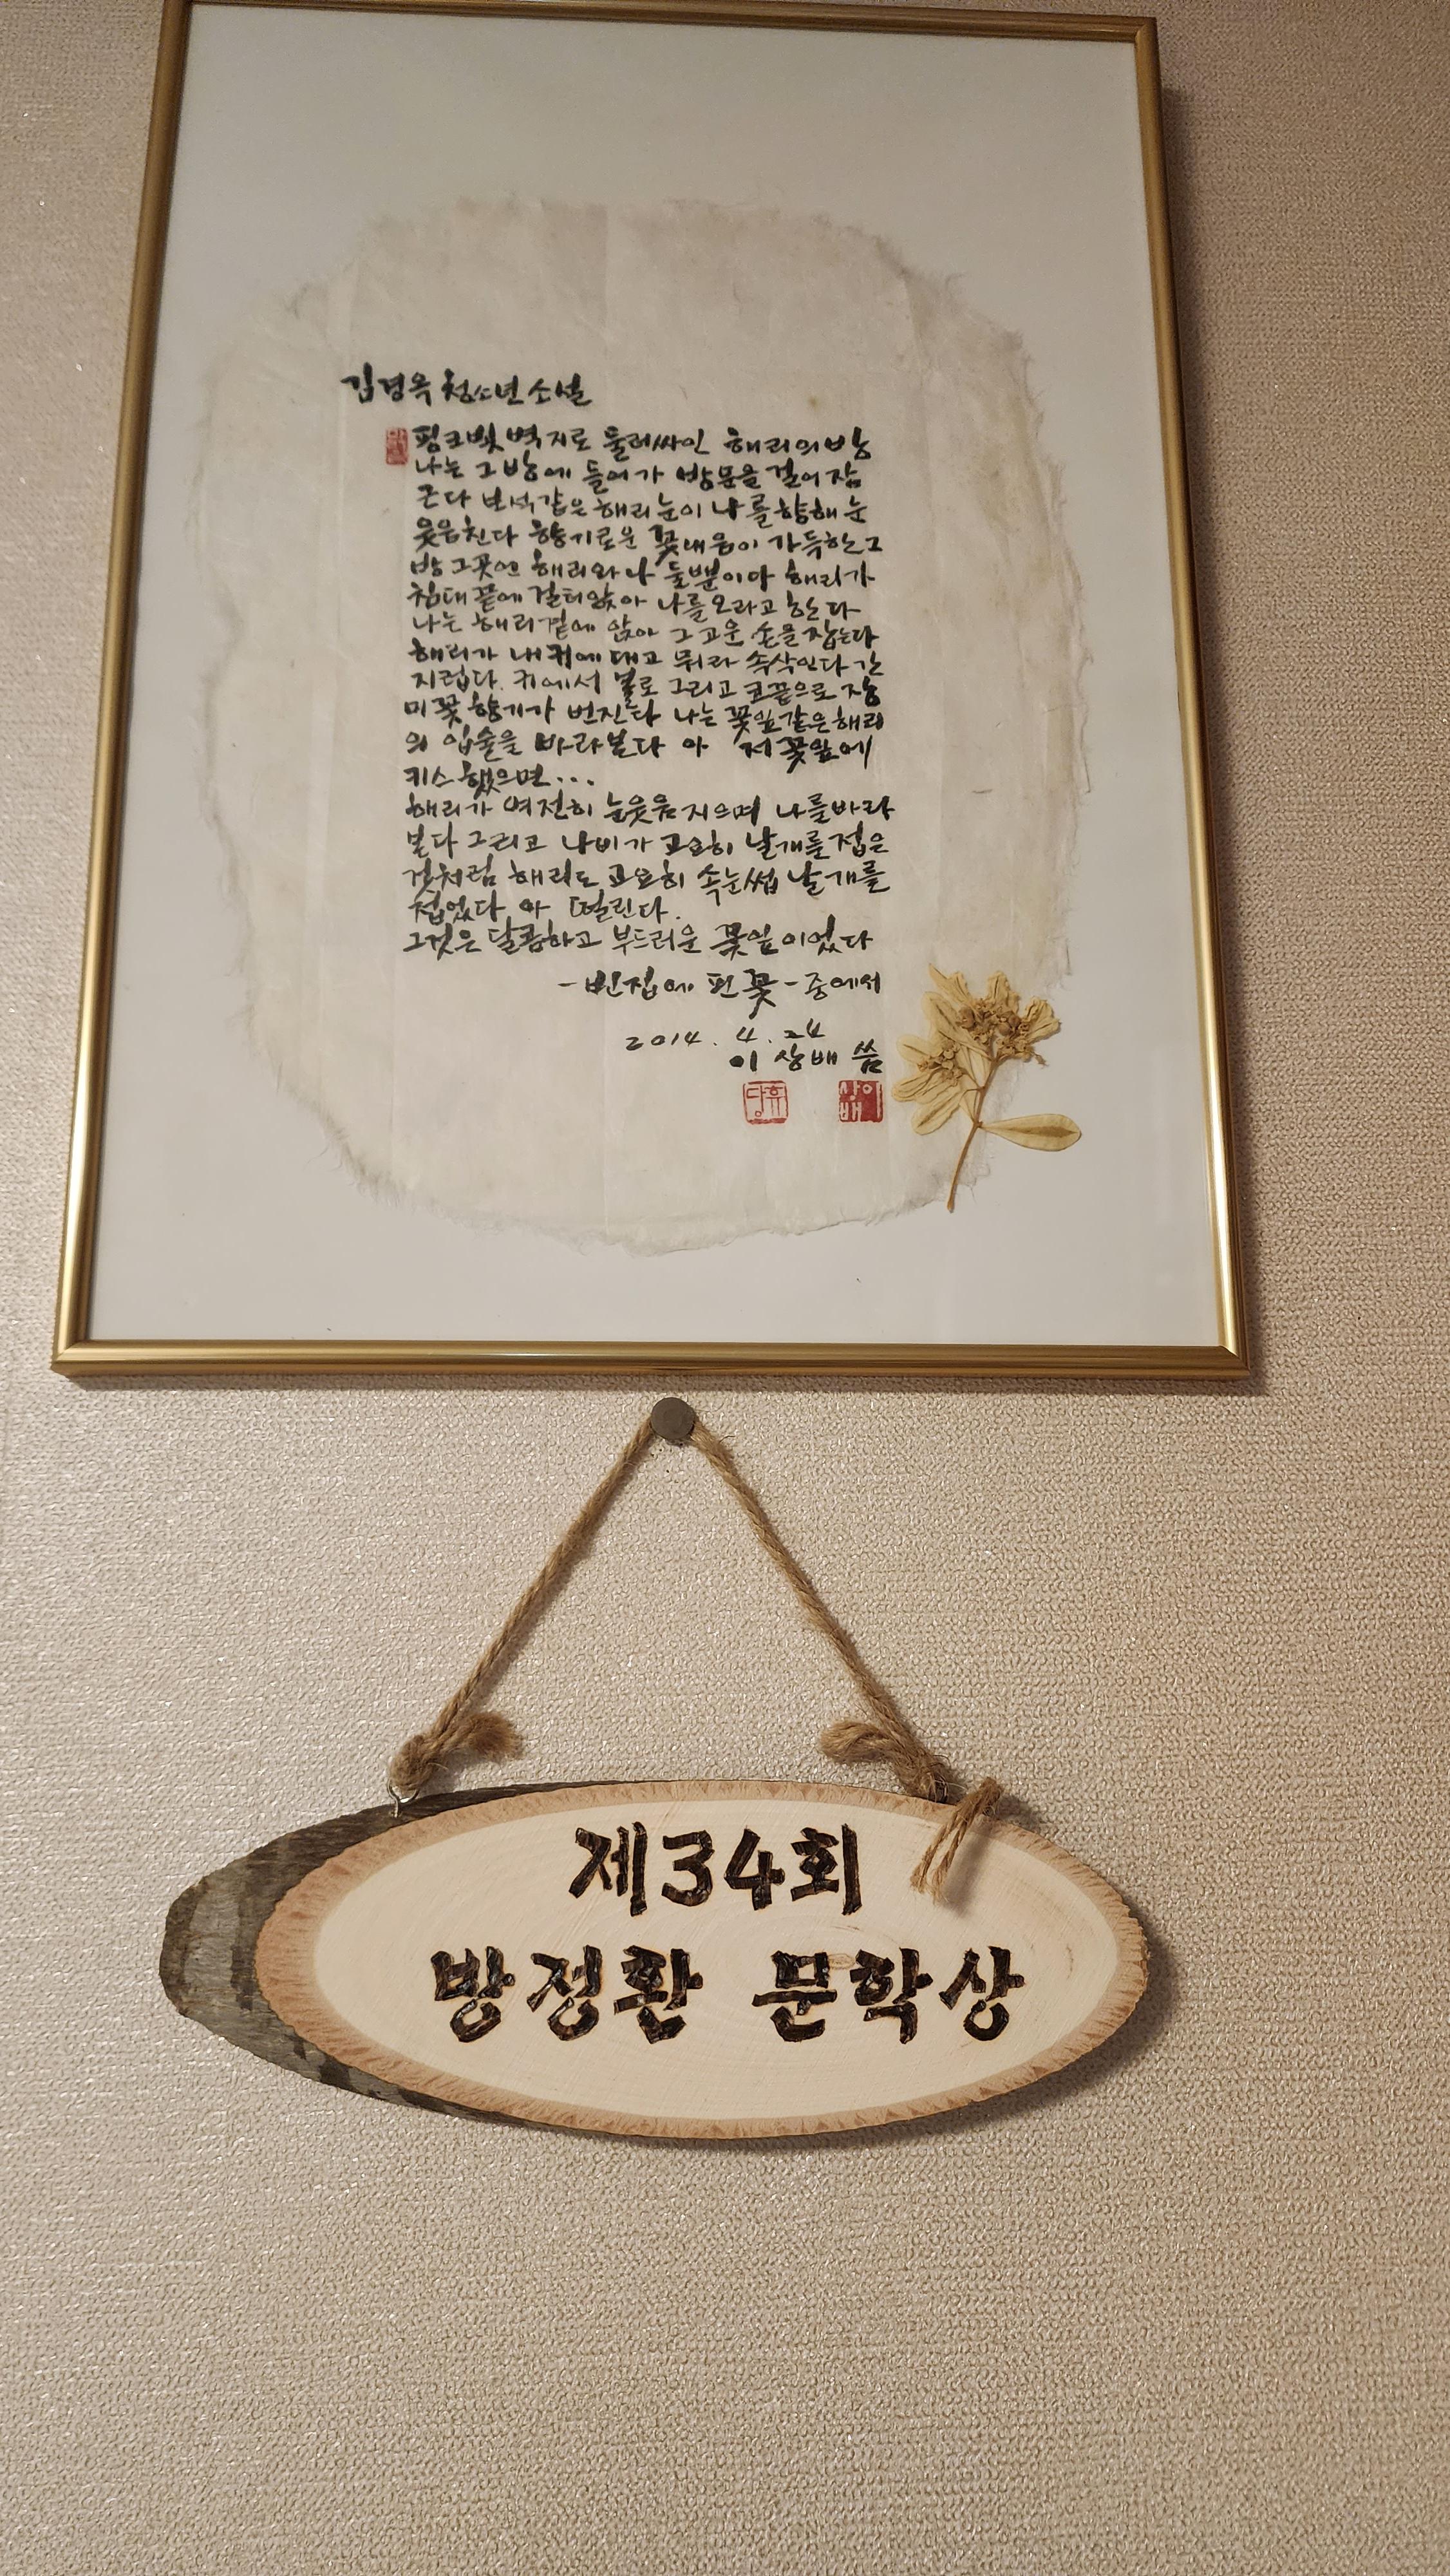 김경옥 청소년 소설
핑크빛 벽지로 둘러싸인 해리의 방
나는 그 방에 들어가 방문을 걸어 잠
근다 보석같은 해리 눈이 나를 향해 눈
웃음친다 향기로운 꽃내음이 가득한 그
방 그곳엔 해리와 나 둘뿐이다 해리가
침대 끝에 걸터앉아 나를 오라고 한다
나는 해리 곁에 앉아 그 고운 손을 잡는다
해리가 내 귀에 대고 뭐라 속삭인다 간
지럽다. 귀에서 볼로 그리고 코끝으로 장
미꽃 향기가 번진다 나는 꽃잎같은 해리
의 입술을 바라본다 아 저 꽃잎에
키스했으면...
해리가 여전히 눈웃음 지으며 나를 바라
본다 그리고 나비가 고요히 날개를 접은
것처럼 해리도 고요히 속눈썹 날개를
접었다 아 떨린다.
그것은 달콤하고 부드러운 꽃잎이었다
-빈집에 핀 꽃- 중에서
2014. 4. 24
이상배 씀
휴당 이상배
제34회
방정환 문학상